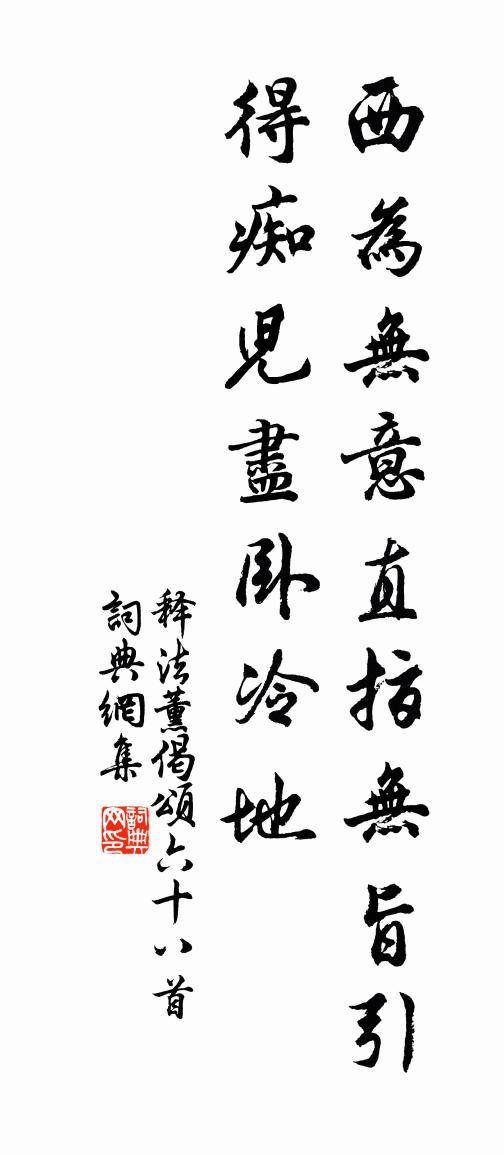 西為無意直指無旨引
得痴兒盡臥冷地
释法薰偈頌六十八首
詞典網集
詞典网印